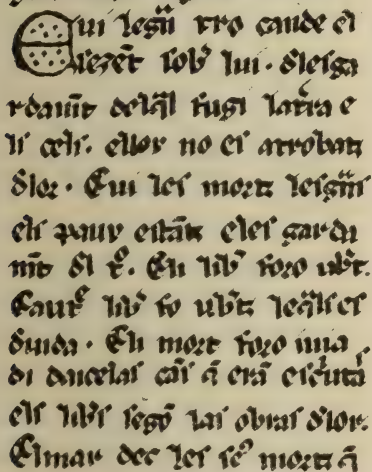 Eui legñ tro cande el
sezēt sob' lui · dlesga
rdamēt delq̄l fugi lat̄ra e
li cels. ellor no es atrobatz
dlor · Eui les mortz lesgñs
els paup estātz eles garda
mēt dl t°. Eli lib' foro ub't.
Eaut' lib' fo ub'tz leq̄ls es
duida · Eli mort foro iuia
di daicelas cās q̄ erā esc'uta
els lib's segō las obras dlor.
Elmar dec les se⁹ mortz q̄